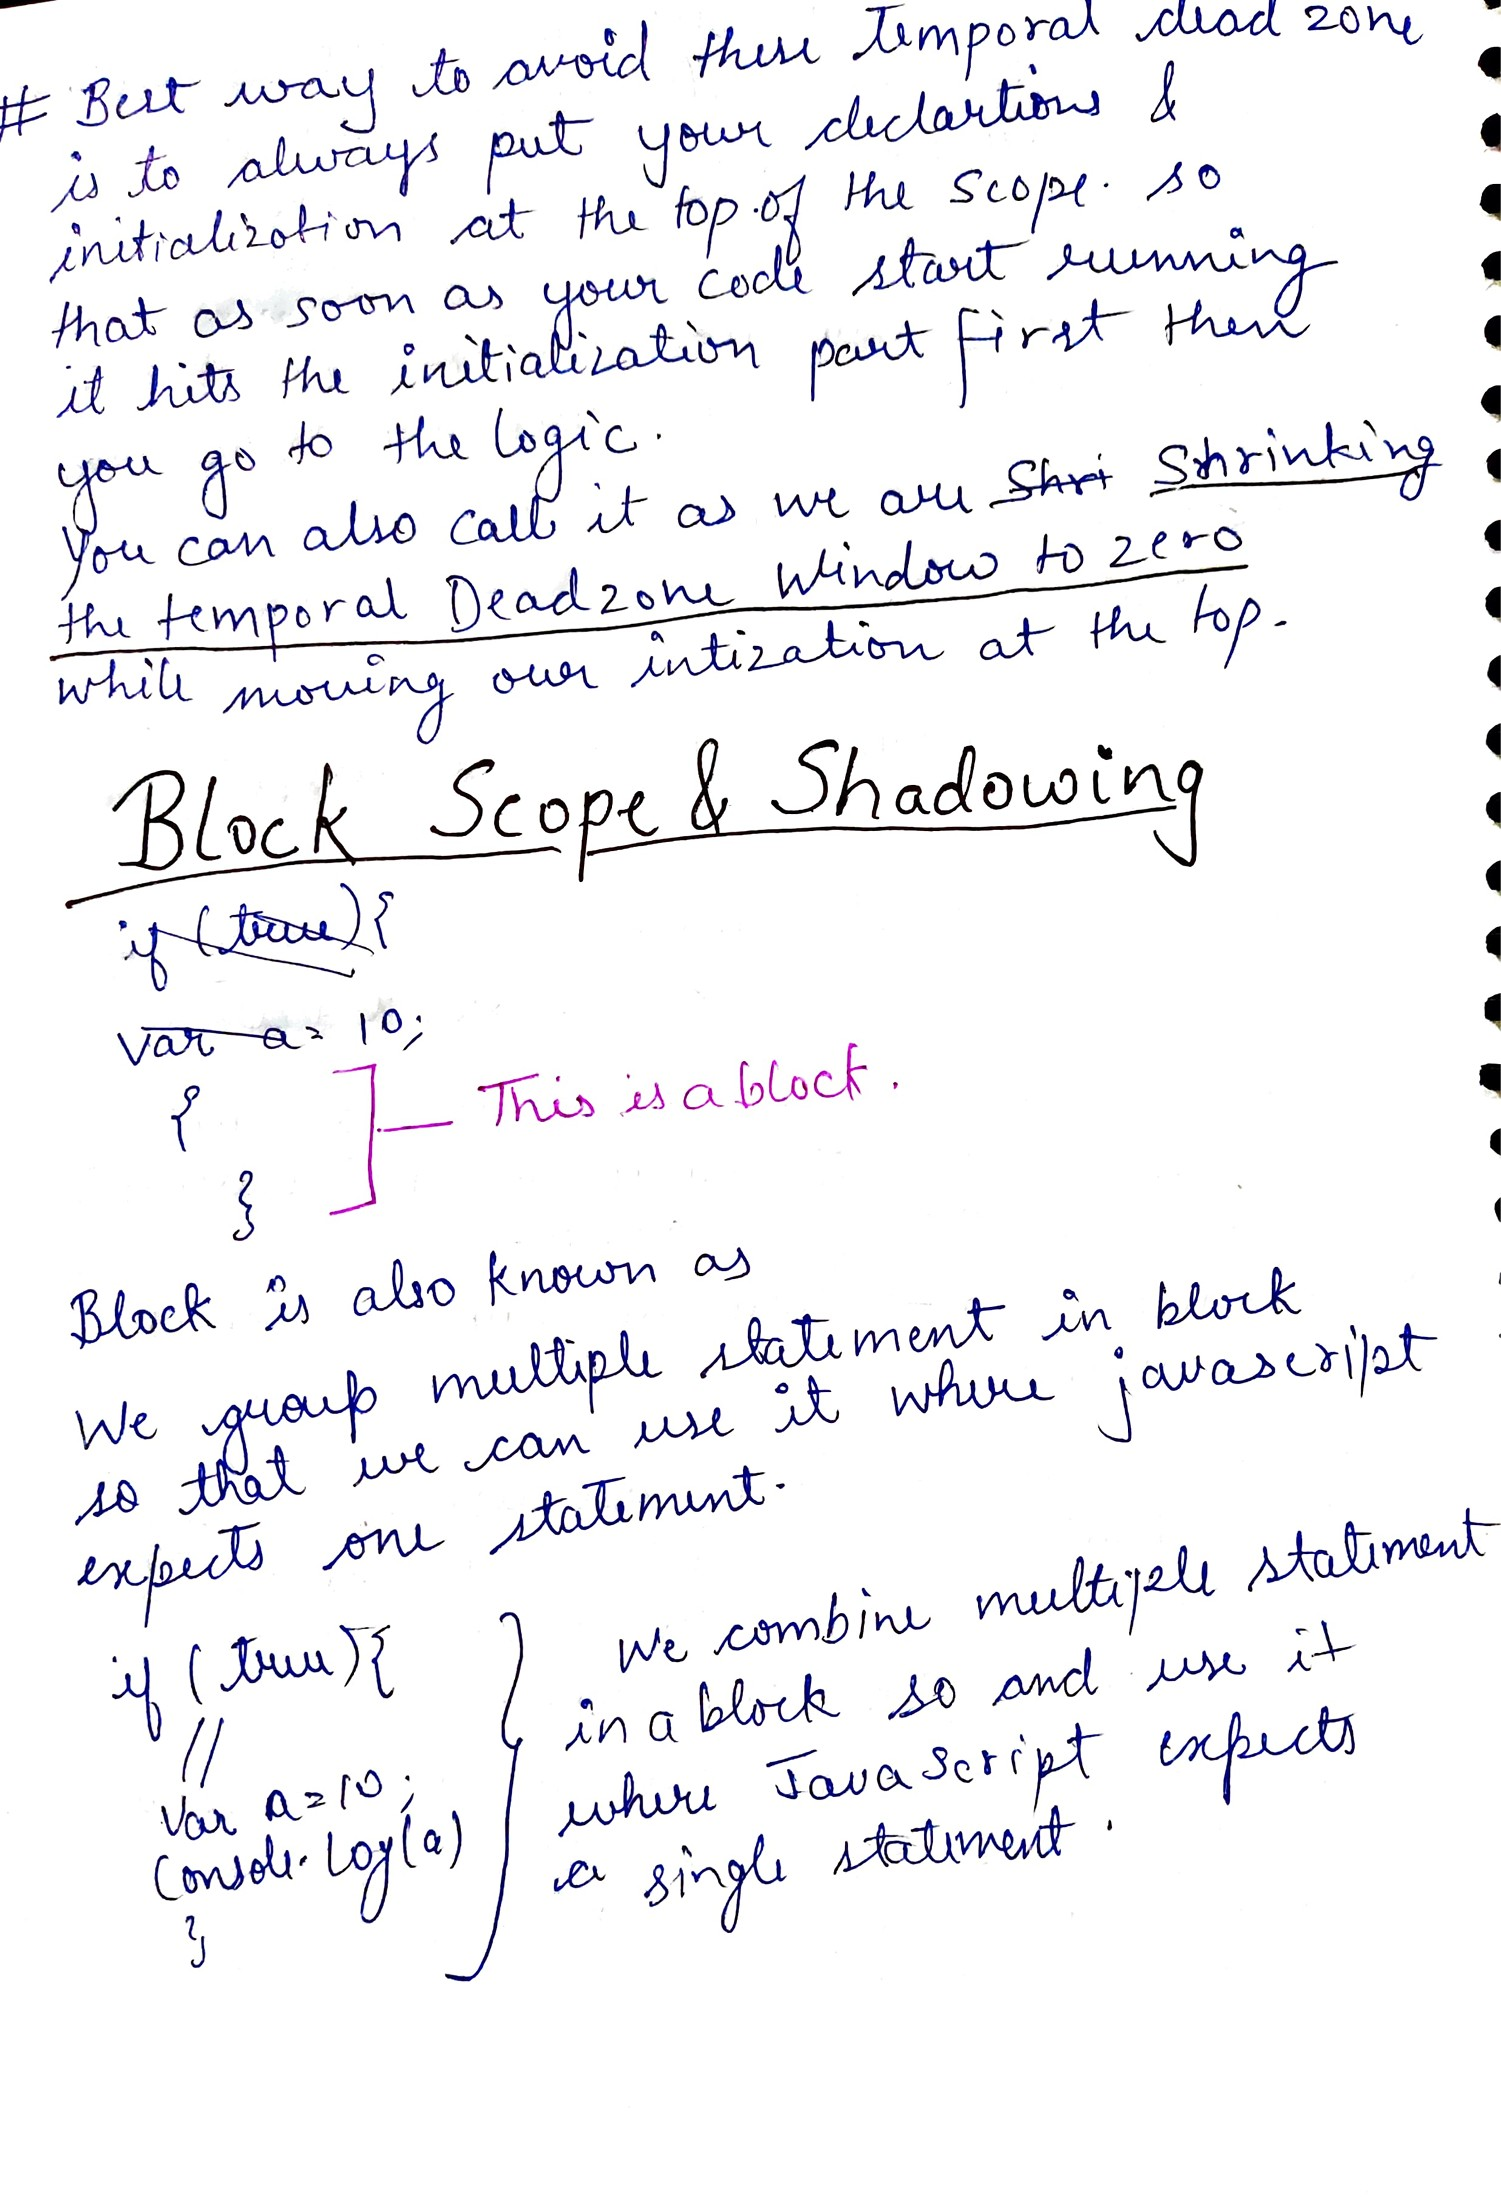 # Best way to avoid these Temporal dead zone
is to always put your declartions &
initialization at the top of the scope. so
that as soon as your code start running
it hits the initialization part first then
you go to the logic.
You can also call it as we are Shri Shrinking
the temporal Deadzone Window to zero
while moving our intization at the top.
Block Scope & Shadowing
if (true) {
var a = 10;
{
This is a block.
}
Block is also known as
We group multiple statement in block
so that we can use it where javascript
expects one statement.
if (true) {
//
Var a = 10;
Console.log(a)
}
We combine multiple statement
in a block so and use it
where JavaScript expects
a single statement.